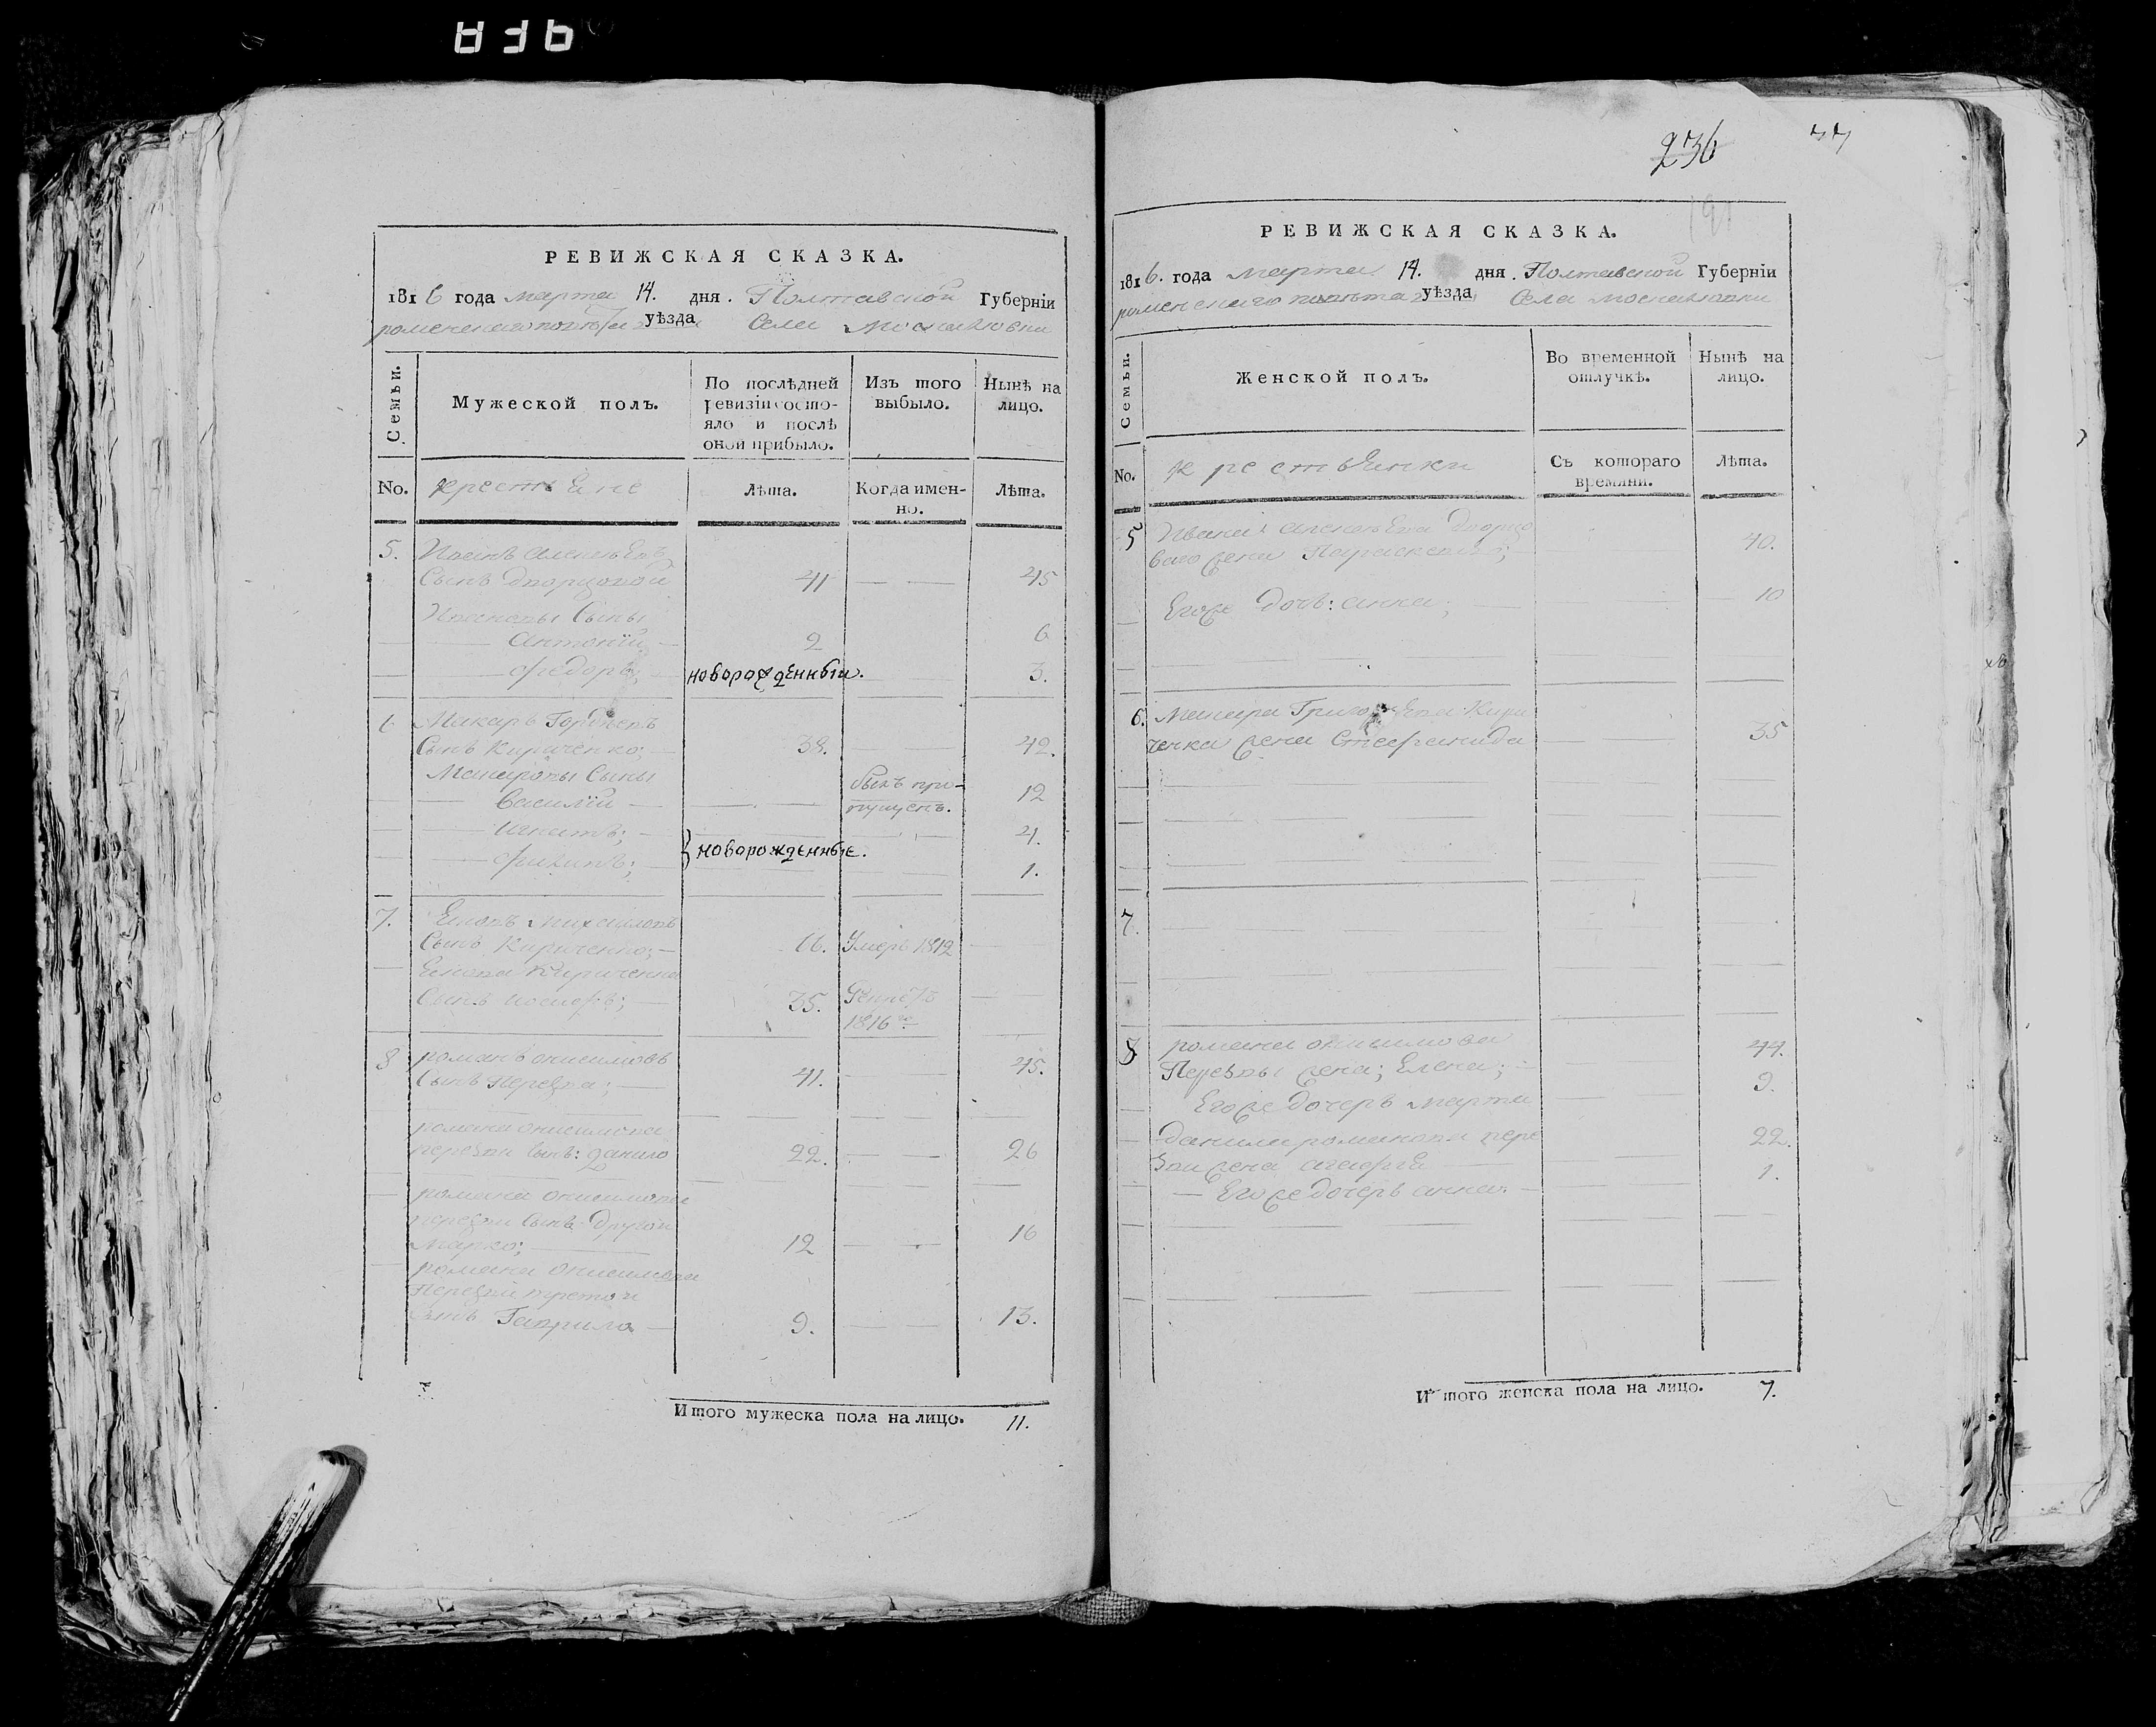 836
РЕВИЖСКАЯ СКАЗКА.
1816 года марта 14. дня. Полтавской Губерніи
роменскаго повѣта уѣзда Села Москаловки
Семьи.
Мужеской полъ.
По послѣдней ревизіи состо-
яло и послѣ
оной прибыло.
Изъ того
выбыло.
Нынѣ на
лицо.
No.
крестьяне
Лѣта.
Когда имен-
но.
Лѣта.
5. Иванъ
Сынъ Дворцовой 41 45
Ивановы Сыны
Антоній 2 6
Федоръ; новорожденный. 3.
6 Макаръ
Сынъ Кириченко; 38. 42.
Макаровы Сыны
Василій былъ про-
пущенъ. 12
Игнатъ; 4.
новорожденные.
Филипъ; 1.
7. Михайловъ
Сынъ Кириченко; 66. Умеръ 1812
Кириченка
Сынъ Іосифъ; 35.
1816
8 романъ онисимовъ
Сынъ Перезва; 41. 45.
романа онисимова
перезвы сынъ: данило 22. 26
романа онисимова
перезвы Сынъ другой
Марко; 12 16
романа онисимова
Перезвы третой
Сынъ Гаврило 9. 13.
Итого мужеска пола на лицо. 11.
236 77
191
РЕВИЖСКАЯ СКАЗКА.
1816. года марта 14. дня. Полтавской Губерніи
роменскаго повѣта уѣзда Села Москаловки
Семьи.
Женской полъ.
Во временной
отлучкѣ.
Нынѣ на
лицо.
No.
крестьянки
Съ котораго
времяни.
Лѣта.
5 Ивана Дворцо
ваго жена Параскевія; 40.
Егоже дочь: анна; 10
6. Макара Кири
ченка жена Стефанида 35
7.
8 романа онисимова
Перезвы жена; Елена; 44.
Егоже дочерь марта 9.
данила романова пере
звы жена агафія 22.
Егоже дочерь анна. 1.
Итого женска пола на лицо. 7.